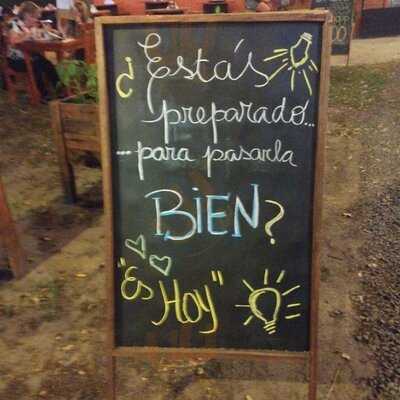 ¿Estás
preparado...
...para pasarla
BIEN?
"Es Hoy"